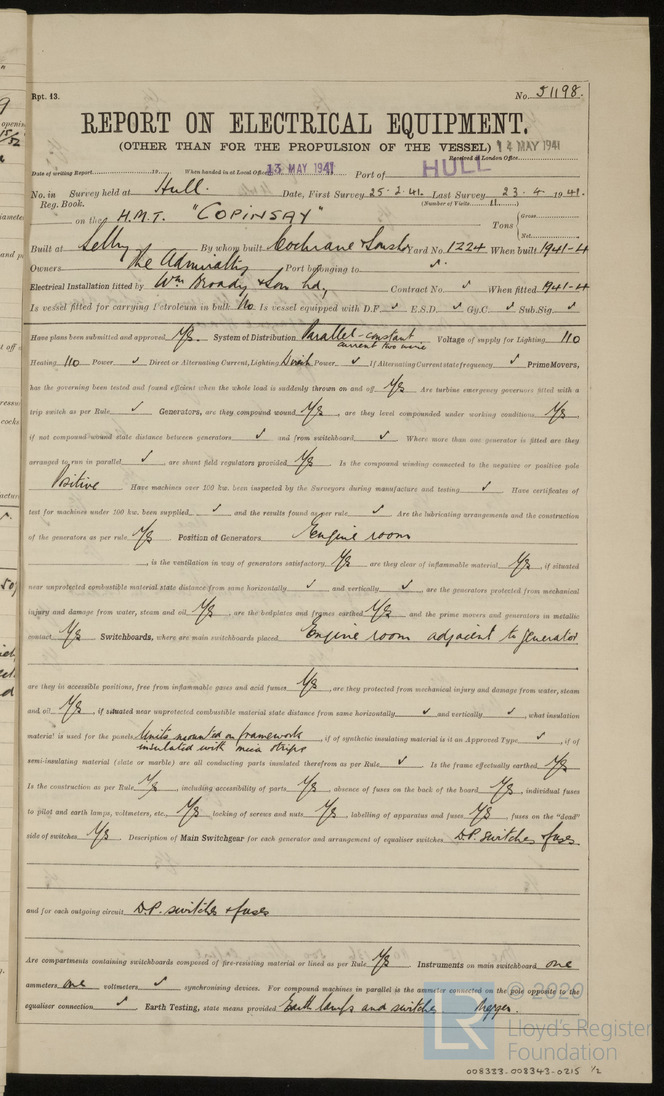 Rpt. 13.
No. 51198.
REPORT ON ELECTRICAL EQUIPMENT.
(OTHER THAN FOR THE PROPULSION OF THE VESSEL) 14 MAY 1941
Received at London Office
Date of writing Report 19 When handed in at Local Office 13 MAY 1941 Port of HULL
No. in Survey held at Hull. Date, First Survey 25-2-41. Last Survey 23-4-1941.
Reg. Book. (Number of Visits 11)
on the H.M.T. "COPINSAY" Tons { Gross
Net
Built at Selby By whom built Cochrane & Sons Ltd Yard No. 1224 When built 1941-4
Owners The Admiralty Port belonging to ✓
Electrical Installation fitted by Wm Broady & Son Ltd, Contract No. ✓ When fitted 1941-4
Is vessel fitted for carrying Petroleum in bulk No Is vessel equipped with D.F. ✓ E.S.D. ✓ Gy.C. ✓ Sub.Sig. ✓
Have plans been submitted and approved Yes. System of Distribution Parallel-constant current two wire Voltage of supply for Lighting 110
Heating 110 Power ✓ Direct or Alternating Current, Lighting Direct Power ✓ If Alternating Current state frequency ✓ Prime Movers,
has the governing been tested and found efficient when the whole load is suddenly thrown on and off Yes Are turbine emergency governors fitted with a
trip switch as per Rule ✓ Generators, are they compound wound Yes, are they level compounded under working conditions Yes,
if not compound wound state distance between generators ✓ and from switchboard ✓ Where more than one generator is fitted are they
arranged to run in parallel ✓ are shunt field regulators provided Yes Is the compound winding connected to the negative or positive pole
Positive Have machines over 100 kw. been inspected by the Surveyors during manufacture and testing ✓ Have certificates of
test for machines under 100 kw. been supplied ✓ and the results found as per rule ✓ Are the lubricating arrangements and the construction
of the generators as per rule Yes Position of Generators Engine room
, is the ventilation in way of generators satisfactory Yes are they clear of inflammable material Yes, if situated
near unprotected combustible material state distance from same horizontally ✓ and vertically ✓, are the generators protected from mechanical
injury and damage from water, steam and oil Yes, are the bedplates and frames earthed Yes and the prime movers and generators in metallic
contact Yes Switchboards, where are main switchboards placed Engine room adjacent to generator
are they in accessible positions, free from inflammable gases and acid fumes Yes, are they protected from mechanical injury and damage from water, steam
and oil Yes, if situated near unprotected combustible material state distance from same horizontally ✓ and vertically ✓, what insulation
material is used for the panels Units mounted on framework insulated with mica strips, if of synthetic insulating material is it an Approved Type ✓, if of
semi-insulating material (slate or marble) are all conducting parts insulated therefrom as per Rule ✓ Is the frame effectually earthed Yes
Is the construction as per Rule Yes, including accessibility of parts Yes absence of fuses on the back of the board Yes, individual fuses
to pilot and earth lamps, voltmeters, etc., Yes locking of screws and nuts Yes, labelling of apparatus and fuses Yes, fuses on the "dead"
side of switches Yes Description of Main Switchgear for each generator and arrangement of equaliser switches D.P. switches & fuses.
and for each outgoing circuit D.P. switches & fuses
Are compartments containing switchboards composed of fire-resisting material or lined as per Rule Yes Instruments on main switchboard one
ammeters one voltmeters ✓ synchronising devices. For compound machines in parallel is the ammeter connected on the pole opposite to the
equaliser connection ✓ Earth Testing, state means provided Earth lamps and switches Megger.
© 2020
LR
Lloyd's Register
Foundation
008333-008343-0215 1/2